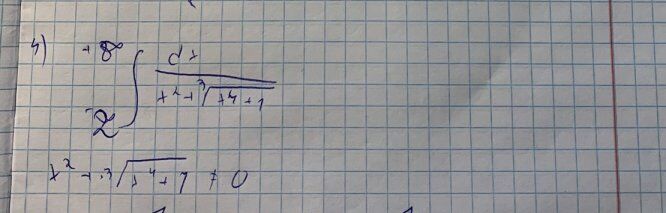 4) ∫_{2}^{+∞} dx / (x² + ∛(x⁴ + 1))
x² + ∛(x⁴ + 1) ≠ 0